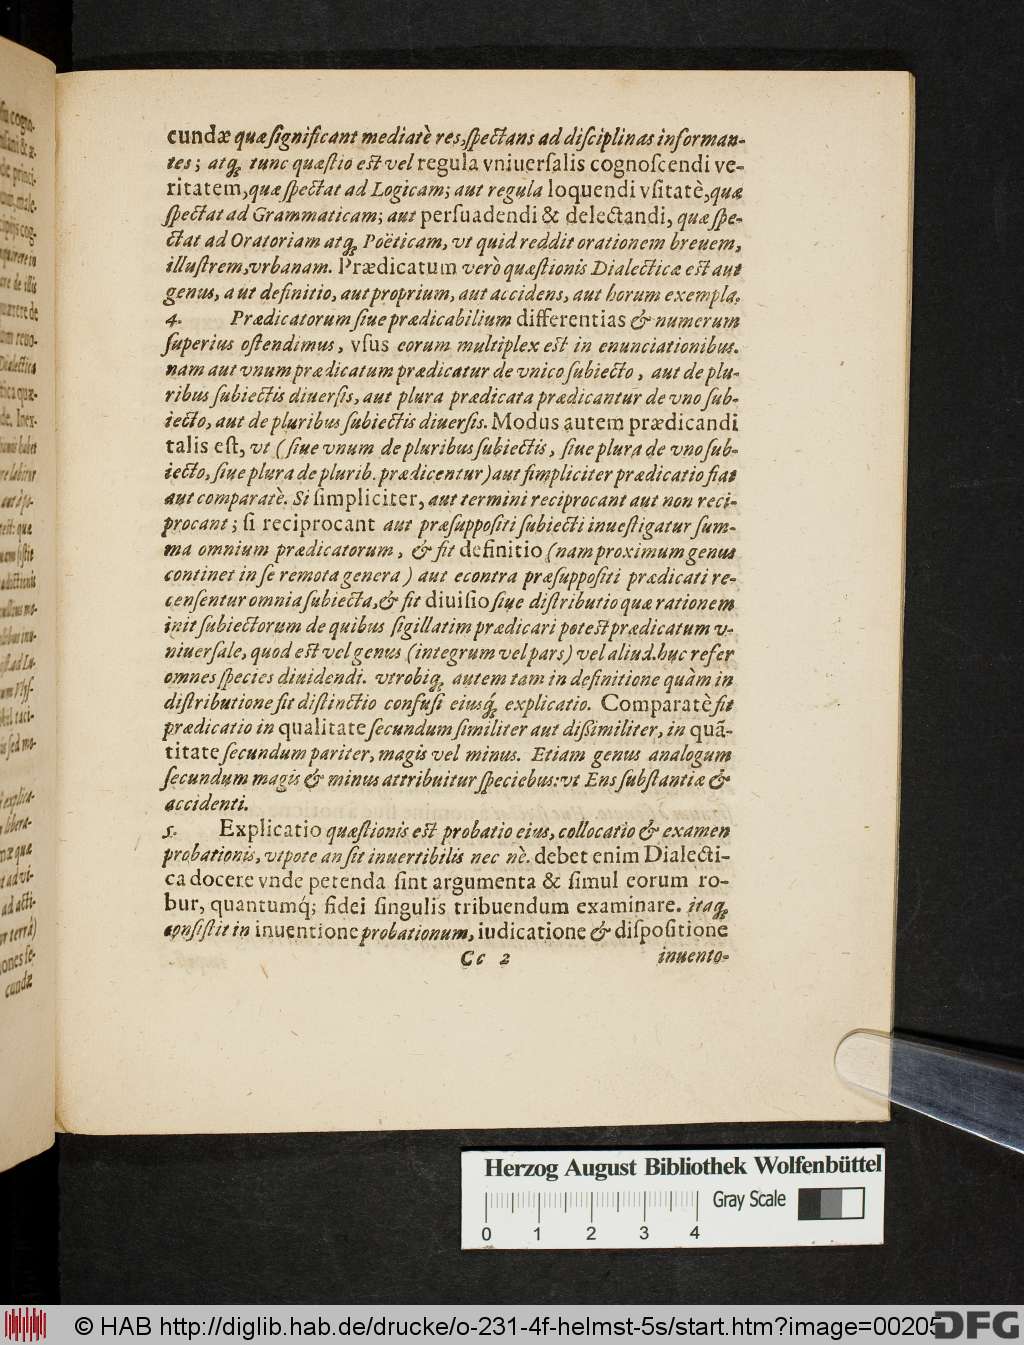 cundæ quæ significant mediatè res, spectans ad disciplinas informan-
tes; atq́ꝫ tunc quæstio est vel regula vniuersalis cognoscendi ve-
ritatem, quæ spectat ad Logicam; aut regula loquendi vsitatè, quæ
spectat ad Grammaticam; aut persuadendi & delectandi, quæ spe-
ctat ad Oratoriam atq́ꝫ Poëticam, vt quid reddit orationem breuem,
illustrem, vrbanam. Prædicatum verò quæstionis Dialecticæ est aut
genus, aut definitio, aut proprium, aut accidens, aut horum exempla.
4. Prædicatorum siue prædicabilium differentias & numerum
superius ostendimus, vsus eorum multiplex est in enunciationibus.
nam aut vnum prædicatum prædicatur de vnico subiecto, aut de plu-
ribus subiectis diuersis, aut plura prædicata prædicantur de vno sub-
iecto, aut de pluribus subiectis diuersis. Modus autem prædicandi
talis est, vt (siue vnum de pluribus subiectis, siue plura de vno sub-
iecto, siue plura de plurib. prædicentur) aut simpliciter prædicatio fiat
aut comparatè. Si simpliciter, aut termini reciprocant aut non reci-
procant; si reciprocant aut præsuppositi subiecti inuestigatur sum-
ma omnium prædicatorum, & fit definitio (nam proximum genus
continet in se remota genera) aut econtra præsuppositi prædicati re-
censentur omnia subiecta, & fit diuisio siue distributio quæ rationem
init subiectorum de quibus sigillatim prædicari potest prædicatum v-
niuersale, quod est vel genus (integrum vel pars) vel aliud. huc refer
omnes species diuidendi. vtrobiq́ꝫ autem tam in definitione quàm in
distributione fit distinctio confusi eiusq́ꝫ explicatio. Comparatè fit
prædicatio in qualitate secundum similiter aut dissimiliter, in quã-
titate secundum pariter, magis vel minus. Etiam genus analogum
secundum magis & minus attribuitur speciebus: vt Ens substantiæ &
accidenti.
5. Explicatio quæstionis est probatio eius, collocatio & examen
probationis, vtpote an sit inuertibilis nec nè. debet enim Dialecti-
ca docere vnde petenda sint argumenta & simul eorum ro-
bur, quantumq́; fidei singulis tribuendum examinare. itaq́ꝫ
consistit in inuentione probationum, iudicatione & dispositione
Cc 2 inuento-
Herzog August Bibliothek Wolfenbüttel
Gray Scale
0 1 2 3 4
© HAB http://diglib.hab.de/drucke/o-231-4f-helmst-5s/start.htm?image=00205
DFG